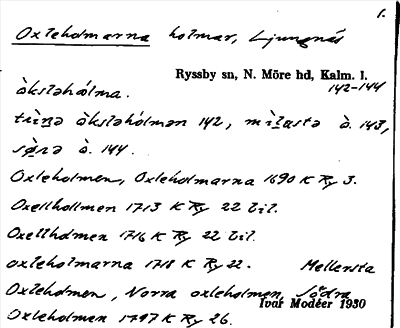 1.
Oxleholmarna holmar, Ljungnäs
Ryssby sn, N. Möre hd, Kalm. l.
142-144
àksləhólma.
àksləhólmən 142, ò. 143,
ò. 144.
Oxleholmen, Oxleholmarna 1690 K Ry 3.
Oxellhollmen 1713 K Ry 22 bil.
Oxellholmen 1716 K Ry 22 bil.
oxleholmarna 1718 K Ry 22. Mellersta
Oxleholmen, Norra oxleholmen, Södra
Ivar Modéer 1930
Oxleholmen 1797 K Ry 26.